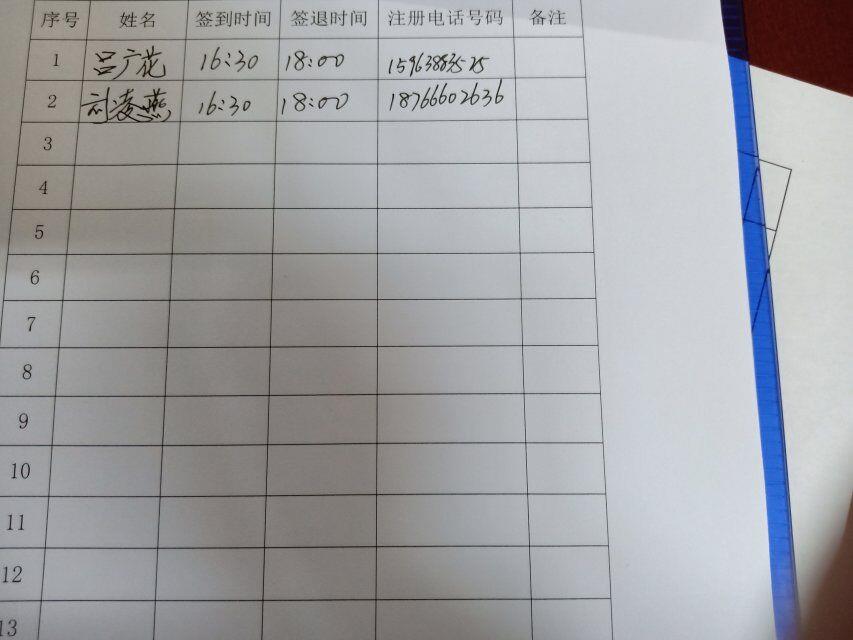 序号 姓名 签到时间 签退时间 注册电话号码 备注
1 吕广花 16:30 18:00
2 刘凌燕 16:30 18:00 18766602636
3
4
5
6
7
8
9
10
11
12
13